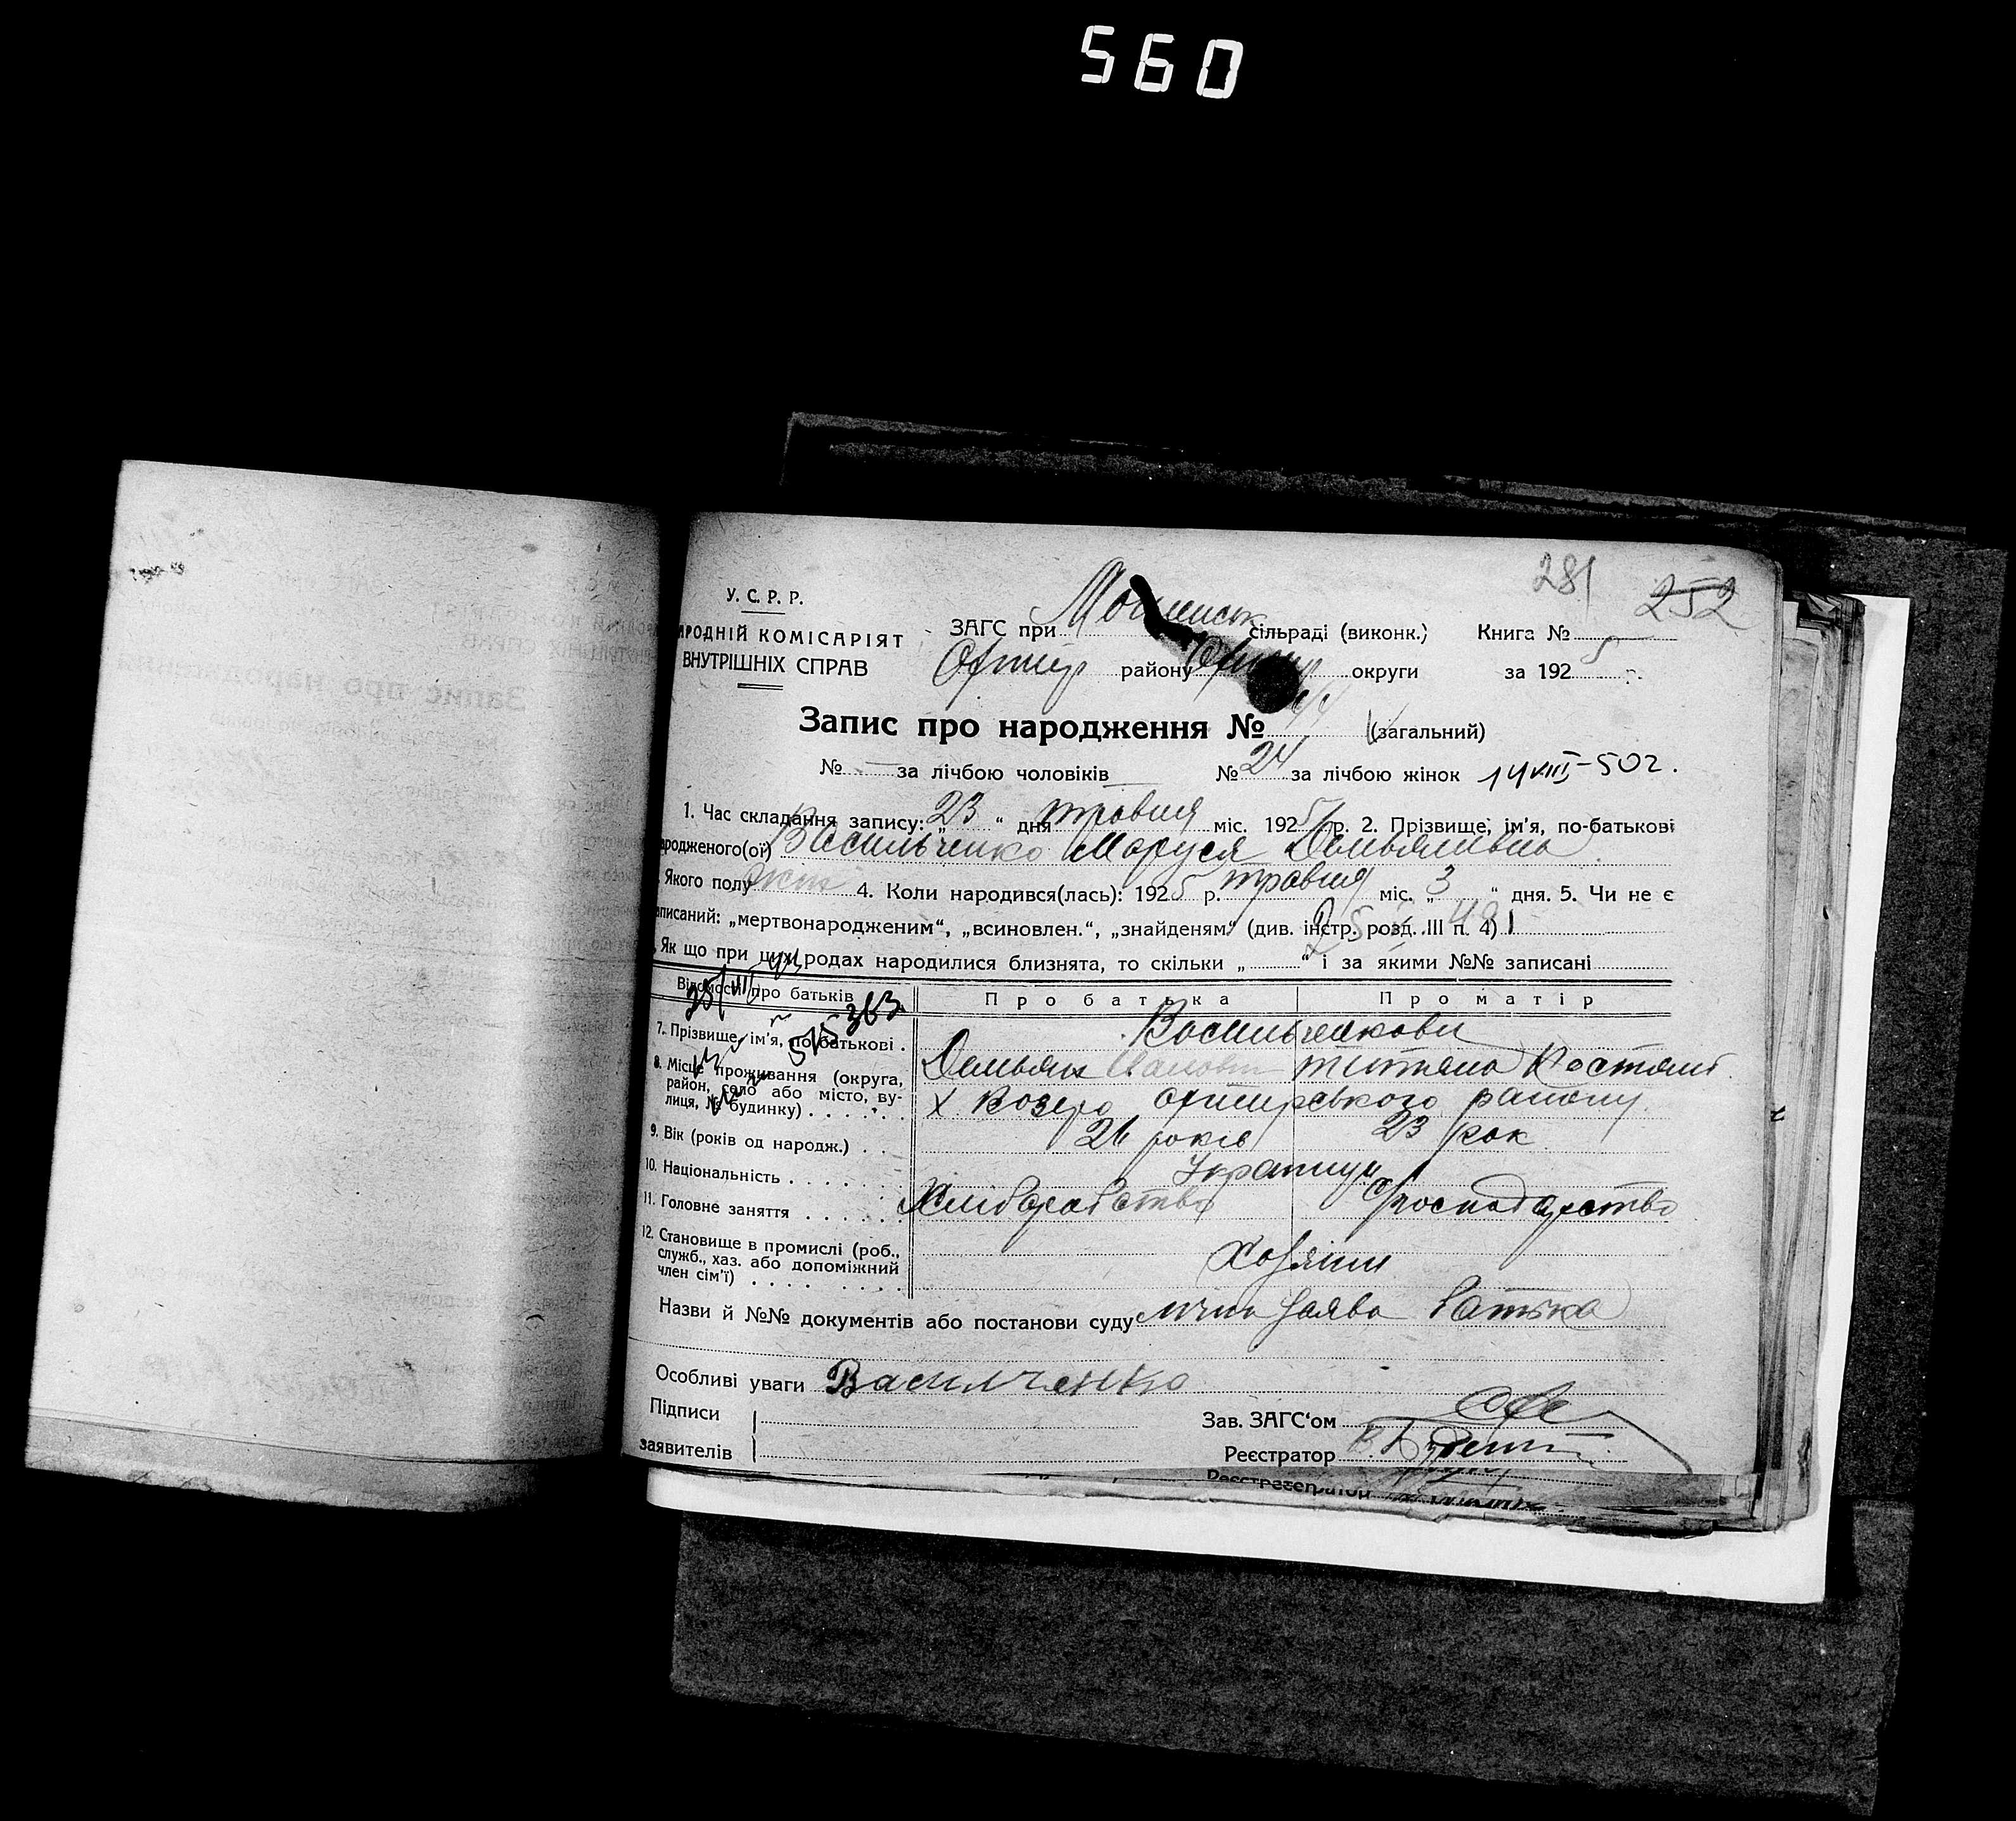 560
281 252
У. С. Р. Р.
НАРОДНІЙ КОМІСАРІЯТ
ВНУТРІШНІХ СПРАВ
ЗАГС при сільраді (виконк.) Книга №
району округи за 1925 р.
Запис про народження № 44 (загальний)
№ — за лічбою чоловіків № 24 за лічбою жінок 14 VIII-50 г.
1. Час складання запису: „23“ дня травня міс. 1925 р. 2. Прізвище, ім'я, по-батькові
народженого(ої) Васильченко Маруся Демьяливна
Якого полу жін 4. Коли народився(лась): 1925 р. травня міс. „3“ дня. 5. Чи не є
записаний: „мертвонародженим“, „всиновлен.“, „знайденям“ (див. інстр. розд. III п. 4)
Як що при цих родах народилися близнята, то скільки „ “ і за якими №№ записані
Відомості про батьків Про батька Про матір
7. Прізвище, ім'я, по-батькові . Васильченкови
Демьян Титяна
8. Місце проживання (округа, район, село або місто, вулиця, № будинку) х. Возеро району
9. Вік (років од народж.) 26 років 23 рок
10. Національність Українці
11. Головне заняття Хліборобство Господарство
12. Становище в промислі (роб., служб., хаз. або допоміжний член сім'ї) Хозяїни
Назви й №№ документів або постанови суду лична заява батька
Особливі уваги Василченко
Підписи Зав. ЗАГС'ом
заявителів Реєстратор